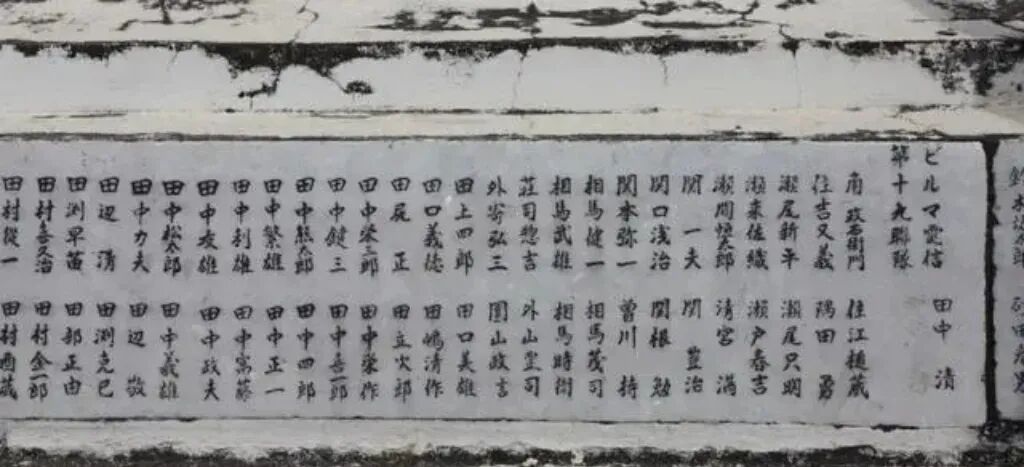 ビルマ電信 田中 清
第十九聯隊
角 政右衛門 住江樋蔵
住吉又義 隅田 勇
瀬尾新平 瀬尾只明
瀬来佐織 瀬戸春吉
瀬間恒太郎 清宮 満
関 一夫 関 豊治
関口浅治 関根 勉
関本弥一 曽川 持
相馬健一 相馬茂司
相馬武雄 相馬時衛
荘司惣吉 外山里司
外寄弘三 園山政吉
田上四郎 田口美雄
田口義徳 田嶋清作
田尻 正 田立次郎
田中栄三郎 田中栄作
田中健三 田中喜一郎
田中熊太郎 田中四郎
田中繁雄 田中正一
田中利雄 田中富藤
田中友雄 田中政夫
田中松太郎 田中義雄
田中力夫 田辺 敬
田辺 清 田渕克己
田渕早苗 田部正由
田村喜久治 田村金一郎
田村従一 田村酉蔵